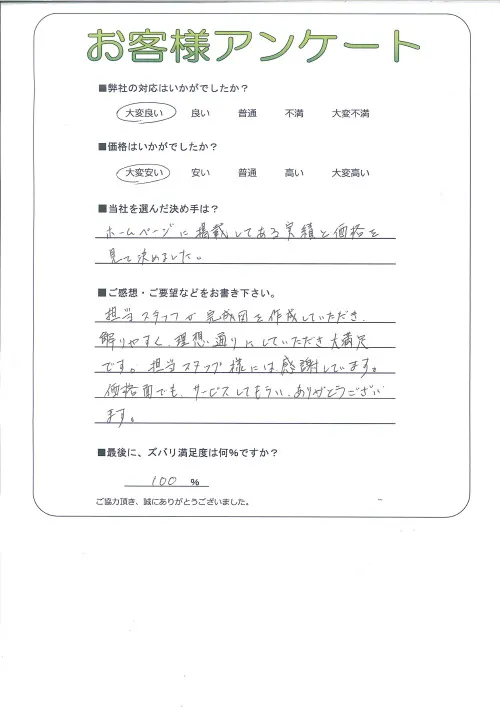 お客様アンケート
■弊社の対応はいかがでしたか？
大変良い 良い 普通 不満 大変不満
■価格はいかがでしたか？
大変安い 安い 普通 高い 大変高い
■当社を選んだ決め手は？
ホームページに掲載してある実績と価格を
見て決めました。
■ご感想・ご要望などをお書き下さい。
担当スタッフが完成図を作成していただき、
解りやすく、理想通りにしていただき大満足
です。担当スタッフ様には感謝しています。
価格面でも、サービスしてもらい、ありがとうござい
ます。
■最後に、ズバリ満足度は何％ですか？
100 ％
ご協力頂き、誠にありがとうございました。